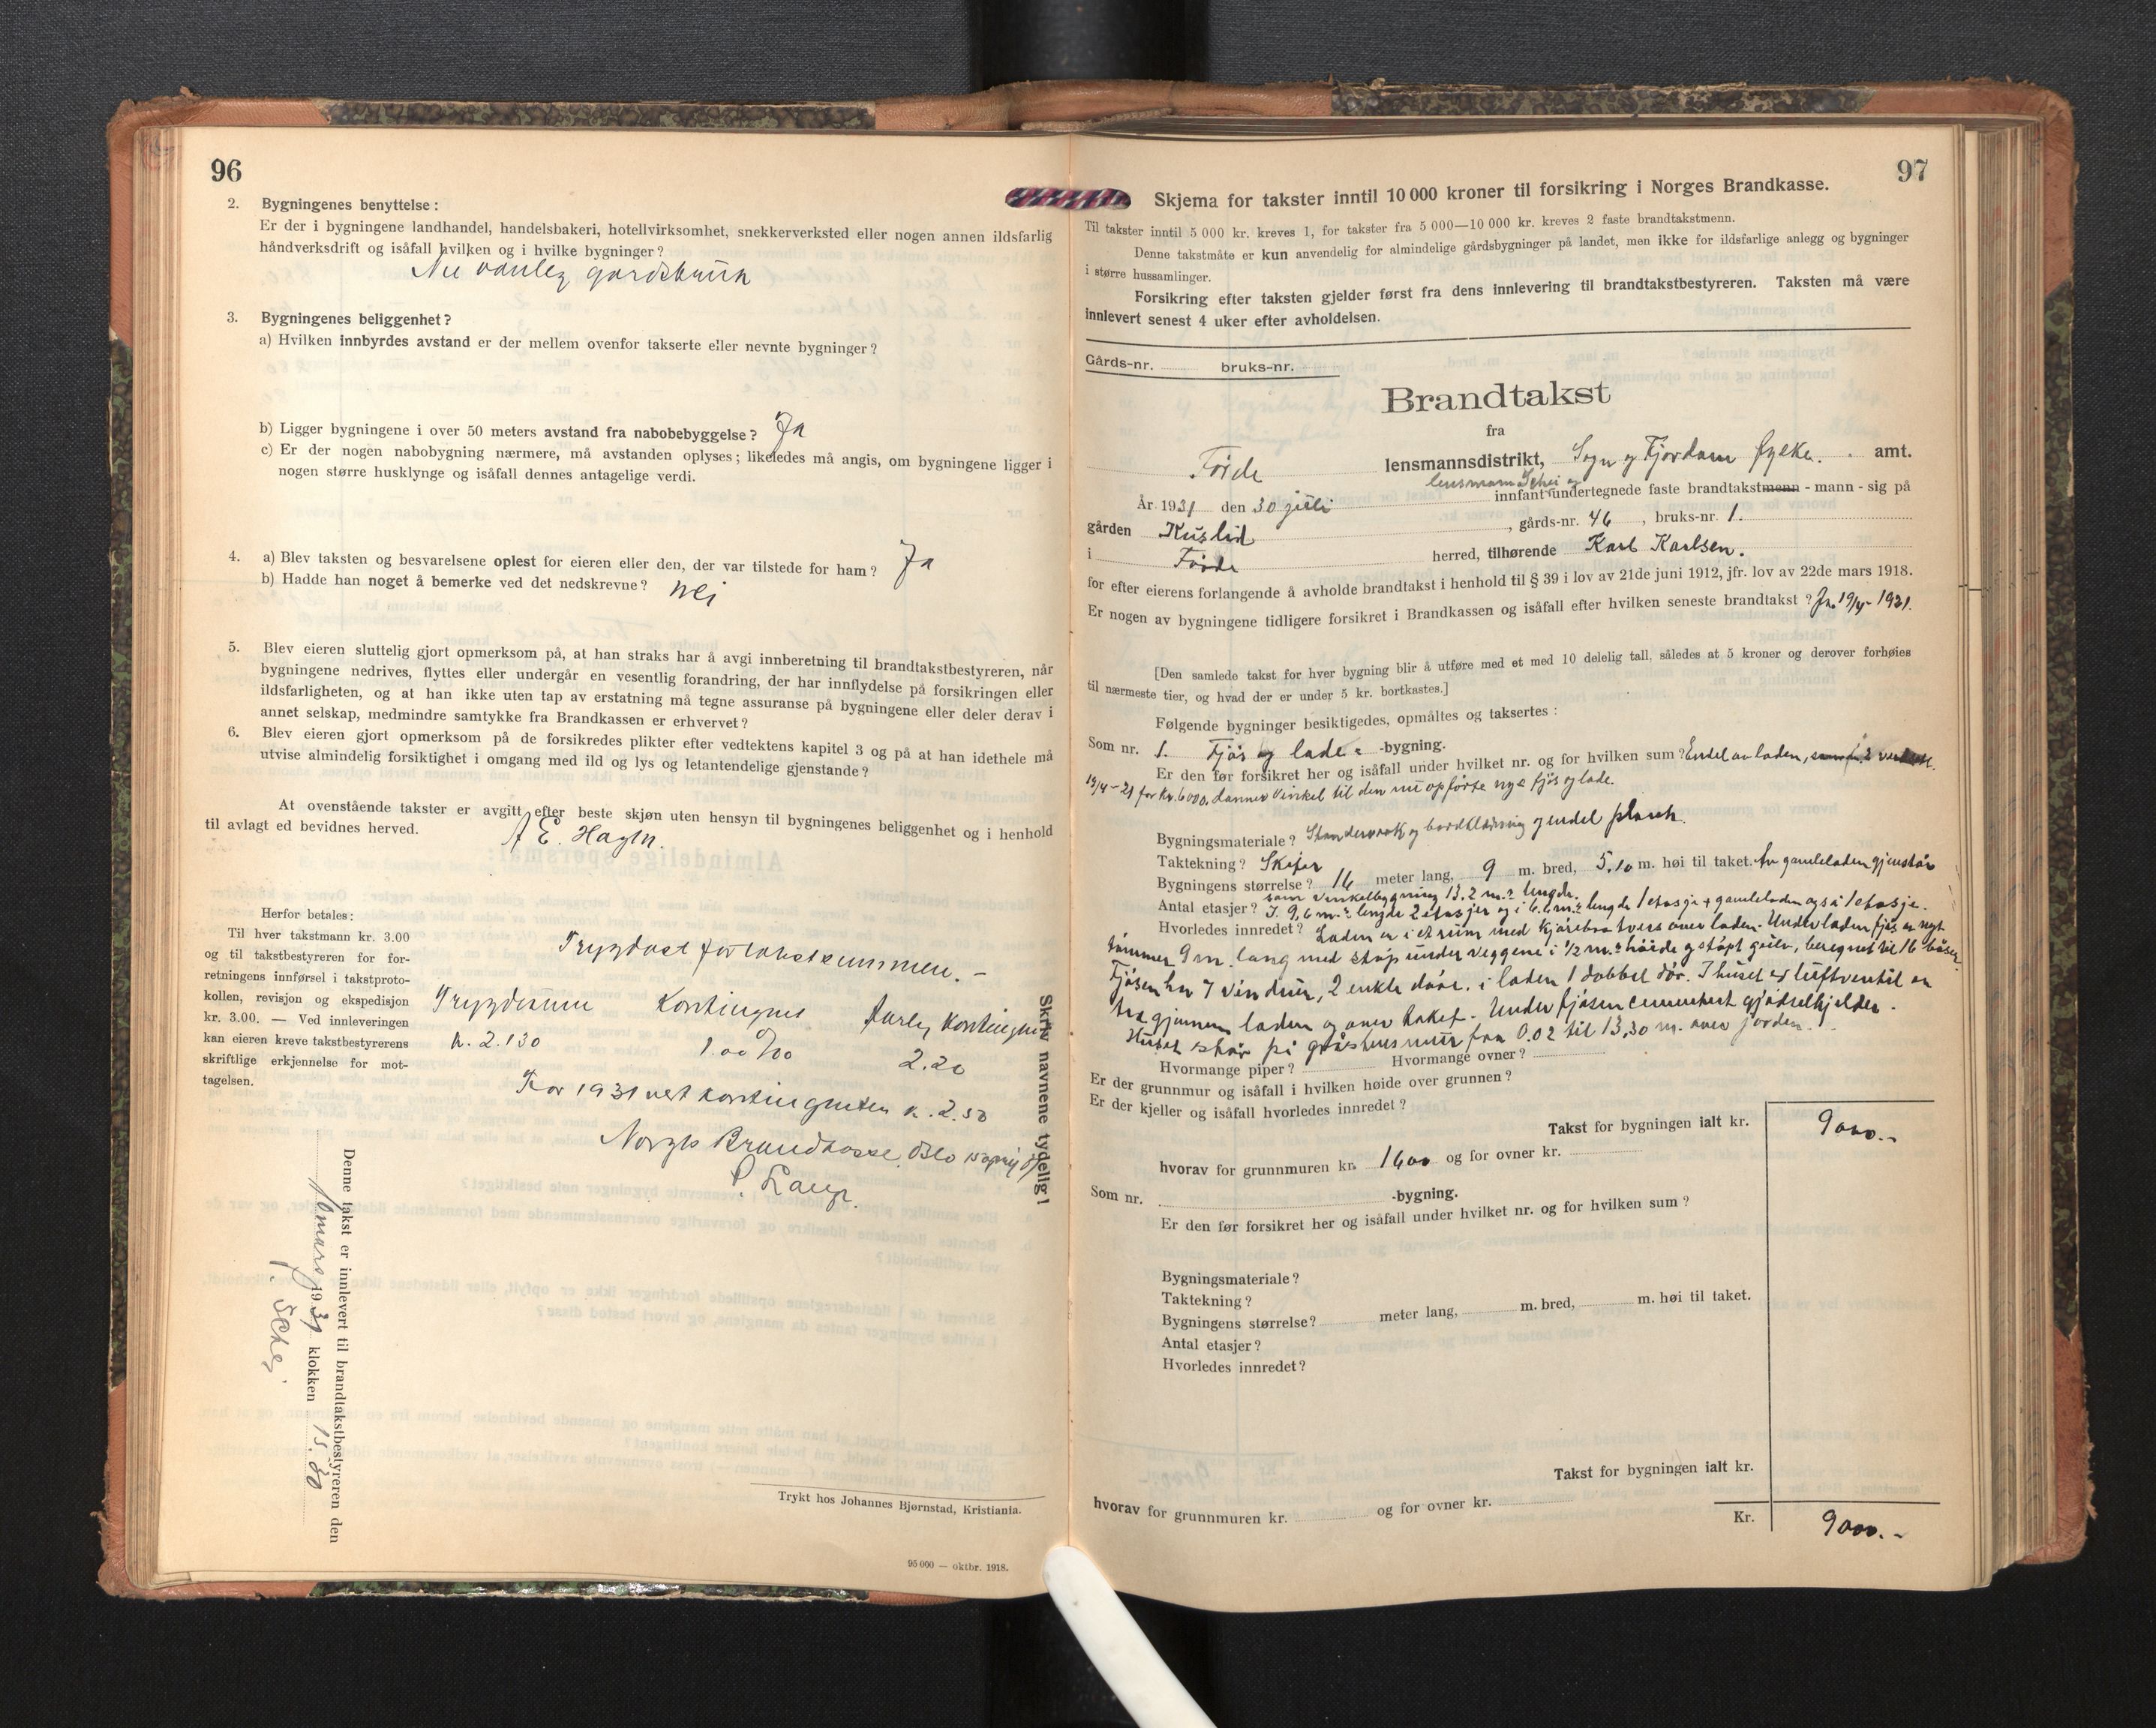 96
2. Bygningenes benyttelse:
Er der i bygningene landhandel, handelsbakeri, hotellvirksomhet, snekkerverksted eller nogen annen ildsfarlig
håndverksdrift og isåfall hvilken og i hvilke bygninger?
vanleg gardsbruk
3. Bygningenes beliggenhet?
a) Hvilken innbyrdes avstand er der mellem ovenfor takserte eller nevnte bygninger?
b) Ligger bygningene i over 50 meters avstand fra nabobebyggelse? Ja
c) Er der nogen nabobygning nærmere, må avstanden oplyses; likeledes må angis, om bygningene ligger i
nogen større husklynge og isåfall dennes antagelige verdi.
4. a) Blev taksten og besvarelsene oplest for eieren eller den, der var tilstede for ham? Ja
b) Hadde han noget å bemerke ved det nedskrevne? Nei
5. Blev eieren sluttelig gjort opmerksom på, at han straks har å avgi innberetning til brandtakstbestyreren, når
bygningene nedrives, flyttes eller undergår en vesentlig forandring, der har innflydelse på forsikringen eller
ildsfarligheten, og at han ikke uten tap av erstatning må tegne assuranse på bygningene eller deler derav i
annet selskap, medmindre samtykke fra Brandkassen er erhvervet?
6. Blev eieren gjort opmerksom på de forsikredes plikter efter vedtektens kapitel 3 og på at han idethele må
utvise almindelig forsiktighet i omgang med ild og lys og letantendelige gjenstande?
At ovenstående takster er avgitt efter beste skjøn uten hensyn til bygningenes beliggenhet og i henhold
til avlagt ed bevidnes herved.
Herfor betales:
Til hver takstmann kr. 3.00
og til takstbestyreren for for-
retningens innførsel i takstproto-
kollen, revisjon og ekspedisjon
kr. 3.00. — Ved innleveringen
kan eieren kreve takstbestyrerens
skriftlige erkjennelse for mot-
tagelsen.
Trygdast for takstsummen. -
Trygdesum Kontingent Aarleg Kontingent
kr. 2.130 1.00 ‰ 2.20
For 1931 vert kontingenten kr. 2.50
Norges Brandkasse, Oslo
Skriv navnene tydelig!
Denne takst er innlevert til brandtakstbestyreren den
mars 1931 klokken 15.30
Schei
Trykt hos Johannes Bjørnstad, Kristiania.
95 000 — oktbr. 1918.
97
Skjema for takster inntil 10 000 kroner til forsikring i Norges Brandkasse.
Til takster inntil 5 000 kr. kreves 1, for takster fra 5 000—10 000 kr. kreves 2 faste brandtakstmenn.
Denne takstmåte er kun anvendelig for almindelige gårdsbygninger på landet, men ikke for ildsfarlige anlegg og bygninger
i større hussamlinger.
Forsikring efter taksten gjelder først fra dens innlevering til brandtakstbestyreren. Taksten må være
innlevert senest 4 uker efter avholdelsen.
Gårds-nr. bruks-nr.
Brandtakst
fra
Förde lensmannsdistrikt, Sogn og Fjordane fylke. amt.
lensmann Schei og
År 1931 den 30 juli innfant undertegnede faste brandtakstmenn - mann - sig på
gården Kuslid, gårds-nr. 46, bruks-nr. 1.
i Förde herred, tilhørende Karl Karlsen.
for efter eierens forlangende å avholde brandtakst i henhold til § 39 i lov av 21de juni 1912, jfr. lov av 22de mars 1918.
Er nogen av bygningene tidligere forsikret i Brandkassen og isåfall efter hvilken seneste brandtakst? Ja. 19/4 - 1921.
[Den samlede takst for hver bygning blir å utføre med et med 10 delelig tall, således at 5 kroner og derover forhøies
til nærmeste tier, og hvad der er under 5 kr. bortkastes.]
Følgende bygninger besiktigedes, opmåltes og taksertes:
Som nr. 1. Fjös og lade -bygning.
Er den før forsikret her og isåfall under hvilket nr. og for hvilken sum? Endel av laden,
19/4 - 21 for kr. 6000. danner vinkel til den nu opförte nye fjös og lade.
Bygningsmateriale? Standerverk og bordklædning og endel plank.
Taktekning? Skifer
Bygningens størrelse? 16 meter lang, 9 m. bred, 5.10 m. høi til taket. Av gamleladen gjenstår
som vinkelbygning 13.2 m.s lengde.
Antal etasjer? I 9,6 m.s lengde 2 etasjer og i 6.6 m.s lengde 1 etasje + gamleladen også 1 etasje.
Hvorledes innredet? Laden er i et rum med kjörebro tvers over laden. Under laden fjös er nyt
tömmer 9 m. lang med stöp under veggene i 1/2 m.s höide og stöpt gulv, beregnet til 16 båser.
Fjösen har 7 vinduer, 2 enkle döre, i laden 1 dobbel dör. I huset er luftventil av
tre gjennem laden og over taket. Under fjösen cementert gjödselkjelder.
Huset står på gråstensmur fra 0.02 til 13,30 m. over jorden.
Hvormange piper? Hvormange ovner?
Er der grunnmur og isåfall i hvilken høide over grunnen?
Er der kjeller og isåfall hvorledes innredet?
Takst for bygningen ialt kr. 9000.-
hvorav for grunnmuren kr. 1600 og for ovner kr.
Som nr. -bygning.
Er den før forsikret her og isåfall under hvilket nr. og for hvilken sum?
Bygningsmateriale?
Taktekning?
Bygningens størrelse? meter lang, m. bred, m. høi til taket.
Antal etasjer?
Hvorledes innredet?
Takst for bygningen ialt kr.
hvorav for grunnmuren kr. og for ovner kr.
Kr. 9000.-